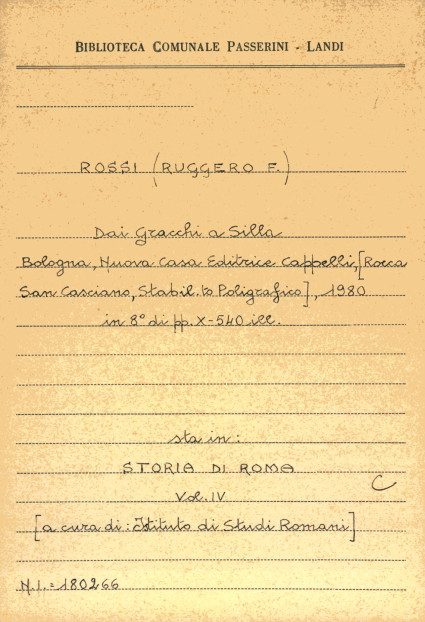 BIBLIOTECA COMUNALE PASSERINI - LANDI
ROSSI (RUGGERO F.)
Dai Gracchi a Silla
Bologna, Nuova Casa Editrice Cappelli, [Rocca
San Casciano, Stabil.to Poligrafico], 1980
in 8° di pp. X-540 ill.
sta in:
STORIA DI ROMA
Vol. IV
C
[a cura di: Istituto di Studi Romani]
N.I. = 180266